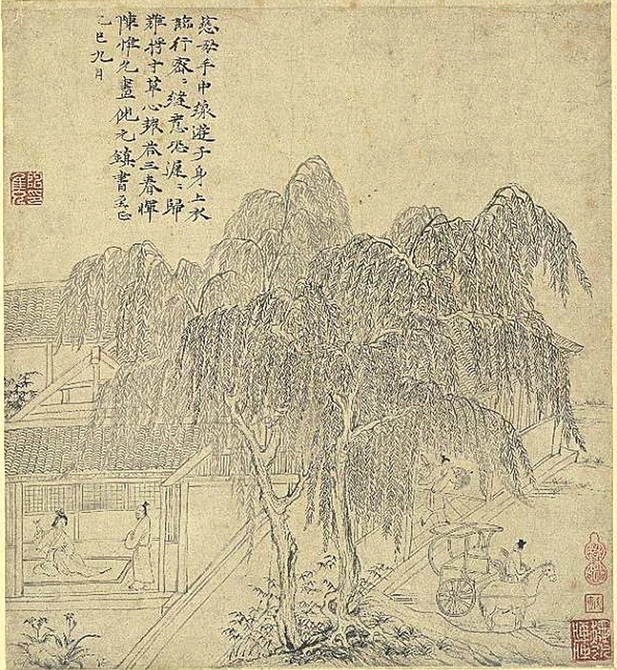 慈母手中線遊子身上衣
臨行密〻縫意恐遲〻歸
難將寸草心報答三春暉
陳惟允畫倪元鎮書至正
乙巳九月